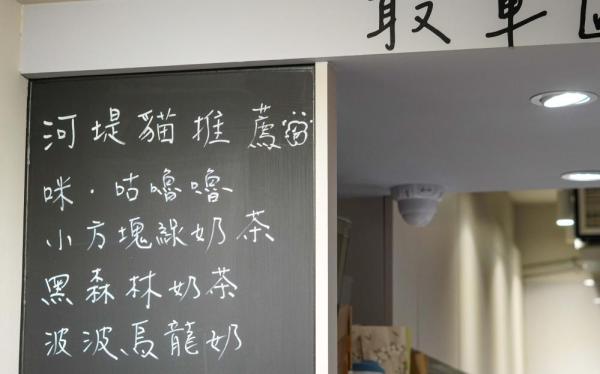 取單區
河堤貓推薦
咪·咕嚕嚕
小方塊綠奶茶
黑森林奶茶
波波烏龍奶